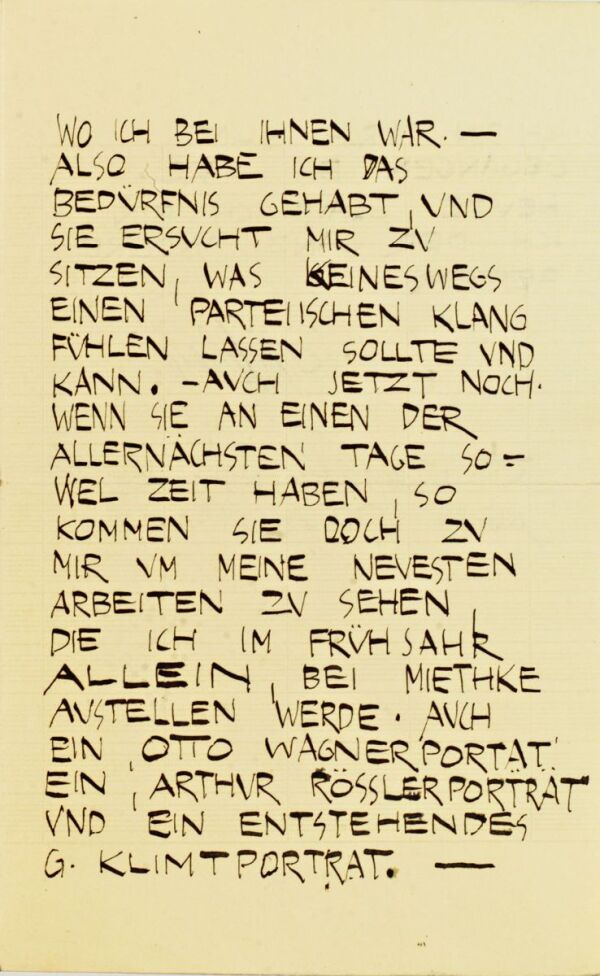 WO ICH BEI IHNEN WAR. —
ALSO HABE ICH DAS
BEDÜRFNIS GEHABT, UND
SIE ERSUCHT MIR ZU
SITZEN, WAS KEINESWEGS
EINEN PARTEIISCHEN KLANG
FÜHLEN LASSEN SOLLTE UND
KANN. – AUCH JETZT NOCH.
WENN SIE AN EINEN DER
ALLERNÄCHSTEN TAGE SO=
WEL ZEIT HABEN, SO
KOMMEN SIE DOCH ZU
MIR UM MEINE NEUESTEN
ARBEITEN ZU SEHEN,
DIE ICH IM FRÜHJAHR
ALLEIN, BEI MIETHKE
AUSTELLEN WERDE. AUCH
EIN, OTTO WAGNER PORTÄT.
EIN, ARTHUR RÖSSLER PORTRÄT
UND EIN ENTSTEHENDES
G. KLIMT PORTRÄT. —